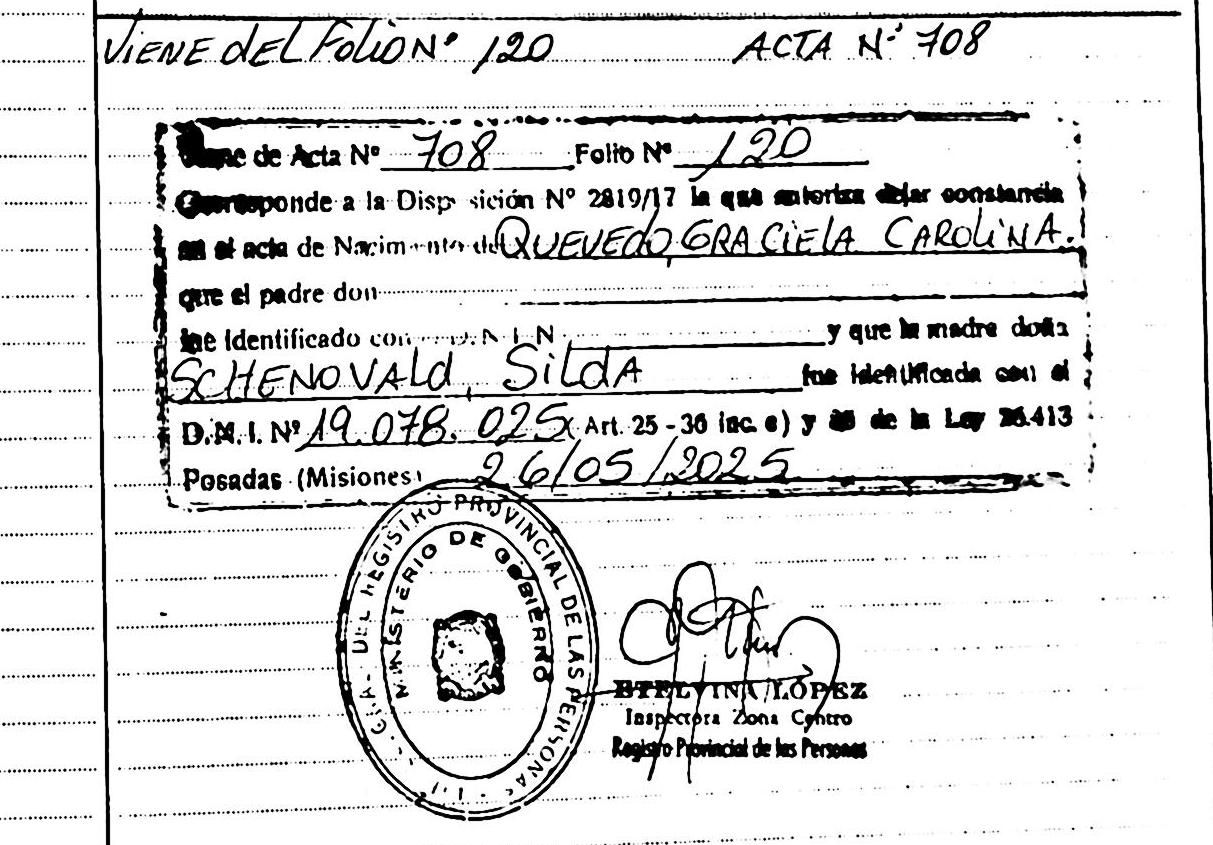 VIENE dEL FOLiO N° 120 ACTA N° 708
Viene de Acta Nº 708 Folio Nº 120
Corresponde a la Disp sición Nº 2819/17 la que autoriza dejar constancia
en el acta de Nacim nto de QUEVEdO, GRACiELA CAROLiNA.
que el padre don
fue Identificado con D.N.I.N y que la madre doña
SCHENOVALd, SiLdA fue identificada con el
D.N.I. Nº 19.078.025 (Art. 25 - 36 inc. c) y de la Ley 26.413
Posadas (Misiones) 26/05/2025
GRAL. DEL REGISTRO PROVINCIAL DE LAS PERSONAS
MINISTERIO DE GOBIERNO
ETELVINA LÓPEZ
Inspectora Zona Centro
Registro Provincial de las Personas